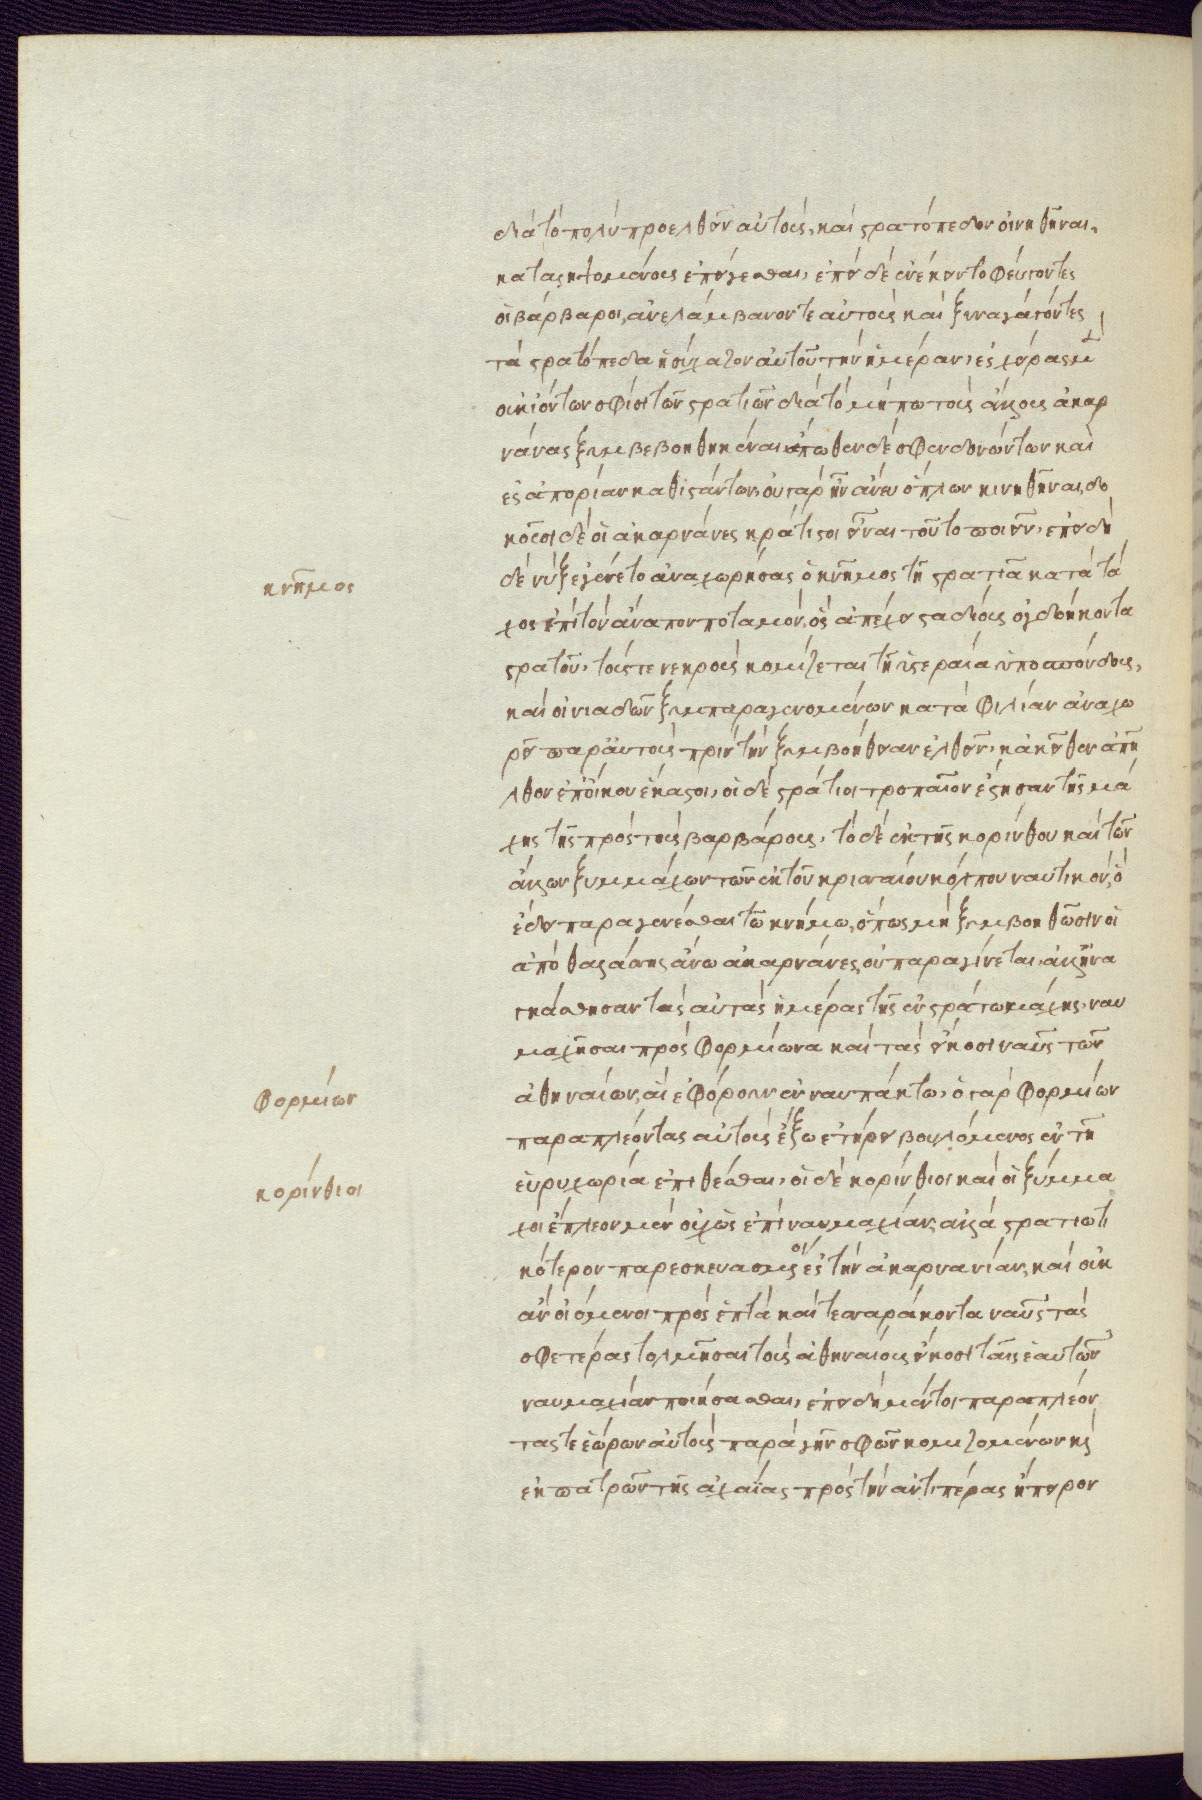 διὰ τὸ πολὺ προελθεῖν αὐτοὺς, καὶ στρατόπεδον οἰηθῆναι,
καταληψομένους ἐπείγεσθαι, ἐπεὶ δὲ ἐνέκειντο φεύγοντες
οἱ βάρβαροι, ἀνελάμβανον τε αὐτοὺς καὶ ξυναγαγόντες
τὰ στρατόπεδα ἡσύχαζον αὐτοῦ τὴν ἡμέραν, ἐς χεῖρας μὲν οὐ
ἰόντων σφίσι τῶν στρατίων διὰ τὸ μήπω τοὺς ἄλλους ἀκαρ
νᾶνας ξυμβεβοηθηκέναι, ἄπωθεν δὲ σφενδονώντων καὶ
ἐς ἀπορίαν καθιστάντων, οὐ γὰρ ἦν ἄνευ ὅπλων κινηθῆναι, δο
κοῦσι δὲ οἱ ἀκαρνᾶνες κράτιστοι εἶναι τοῦτο ποιεῖν, ἐπειδὴ
κνῆμος
δὲ νὺξ ἐγένετο ἀναχωρήσας ὁ κνῆμος τῇ στρατιᾷ κατὰ τά
χος ἐπὶ τὸν ἄναπον ποταμὸν, ὃς ἀπέχει σταδίους ὀγδοήκοντα
στράτου, τούς τε νεκροὺς κομίζεται τῇ ὑστεραία ὑποσπόνδους,
καὶ οἰνιαδῶν ξυμπαραγενομένων κατὰ φιλίαν ἀναχω
ρεῖ παρ' αὐτοὺς πρὶν τὴν ξυμβοήθειαν ἐλθεῖν, κἀκεῖθεν ἀπῆ
λθον ἐπ' οἴκου ἕκαστοι, οἱ δὲ στράτιοι τροπαῖον ἔστησαν τῆς μά
χης τῆς πρὸς τοὺς βαρβάρους, τὸ δὲ ἐκ τῆς κορίνθου καὶ τῶν
ἄλλων ξυμμάχων τῶν ἐκ τοῦ κρισσαίου κόλπου ναυτικὸν, ὃ
ἔδει παραγενέσθαι τῷ κνήμω, ὅπως μὴ ξυμβοηθῶσιν οἱ
ἀπὸ θαλάσσης ἄνω ἀκαρνᾶνες, οὐ παραγίνεται, ἀλλ' ἠνα
γκάσθησαν τὰς αὐτὰς ἡμέρας τῆς ἐν στράτω μάχης, ναυ
μαχῆσαι πρὸς φορμίωνα καὶ τὰς εἴκοσι ναῦς τῶν
φορμίων
ἀθηναίων, αἳ ἐφρούρουν ἐν ναυπάκτω, ὁ γὰρ φορμίων
παραπλέοντας αὐτοὺς ἔξω ἐτήρει βουλόμενος ἐν τῇ
κορίνθιοι
εὐρυχωρία ἐπιθέσθαι, οἱ δὲ κορίνθιοι καὶ οἱ ξύμμα
χοι ἔπλεον μὲν οὐχ ὡς ἐπὶ ναυμαχίαν, ἀλλὰ στρατιωτι
κότερον παρεσκευασμένοι ἐς τὴν ἀκαρνανίαν, καὶ οὐκ
ἂν οἰόμενοι πρὸς ἑπτὰ καὶ τεσσαράκοντα ναῦς τὰς
σφετέρας τολμῆσαι τοὺς ἀθηναίους εἴκοσι ταῖς ἑαυτῶν
ναυμαχίαν ποιήσασθαι, ἐπειδὴ μέντοι παραπλέον
τας τε ἑώρων αὐτοὺς παρὰ γῆν σφῶν κομιζομένων καὶ
ἐκ πατρῶν τῆς ἀχαΐας πρὸς τὴν ἀντιπέρας ἤπειρον